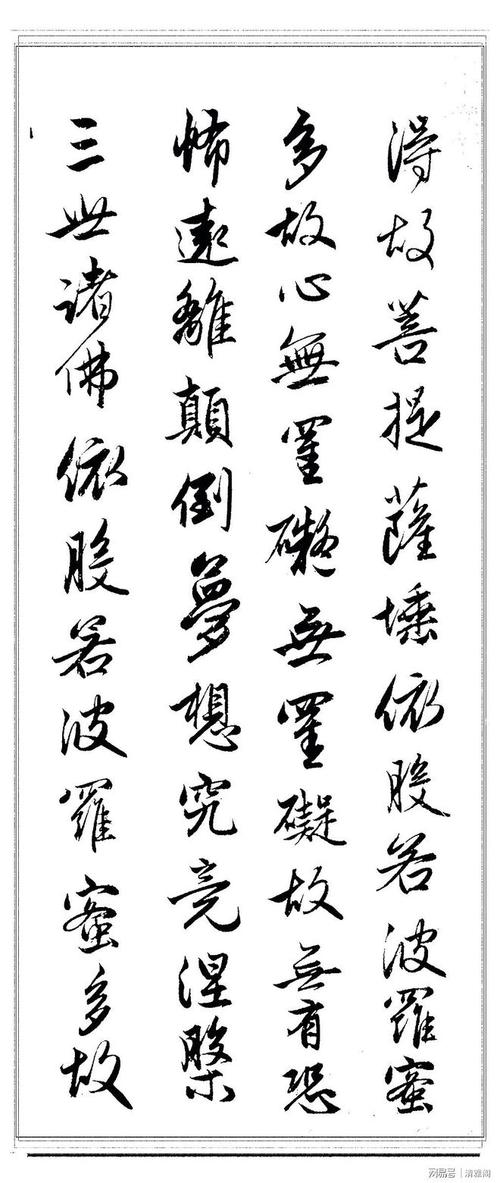 得故菩提薩埵依般若波羅蜜
多故心無罣礙無罣礙故無有恐
怖遠離顛倒夢想究竟涅槃
三世諸佛依般若波羅蜜多故
网易号 | 清雅阁